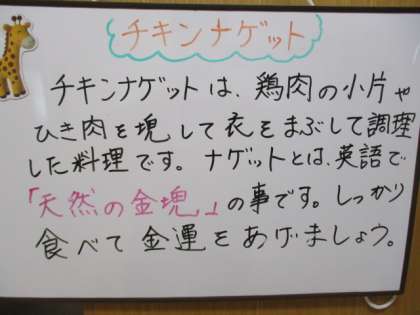 チキンナゲット
チキンナゲットは、鶏肉の小片や
ひき肉を塊して衣をまぶして調理
した料理です。ナゲットとは、英語で
「天然の金塊」の事です。しっかり
食べて金運をあげましょう。